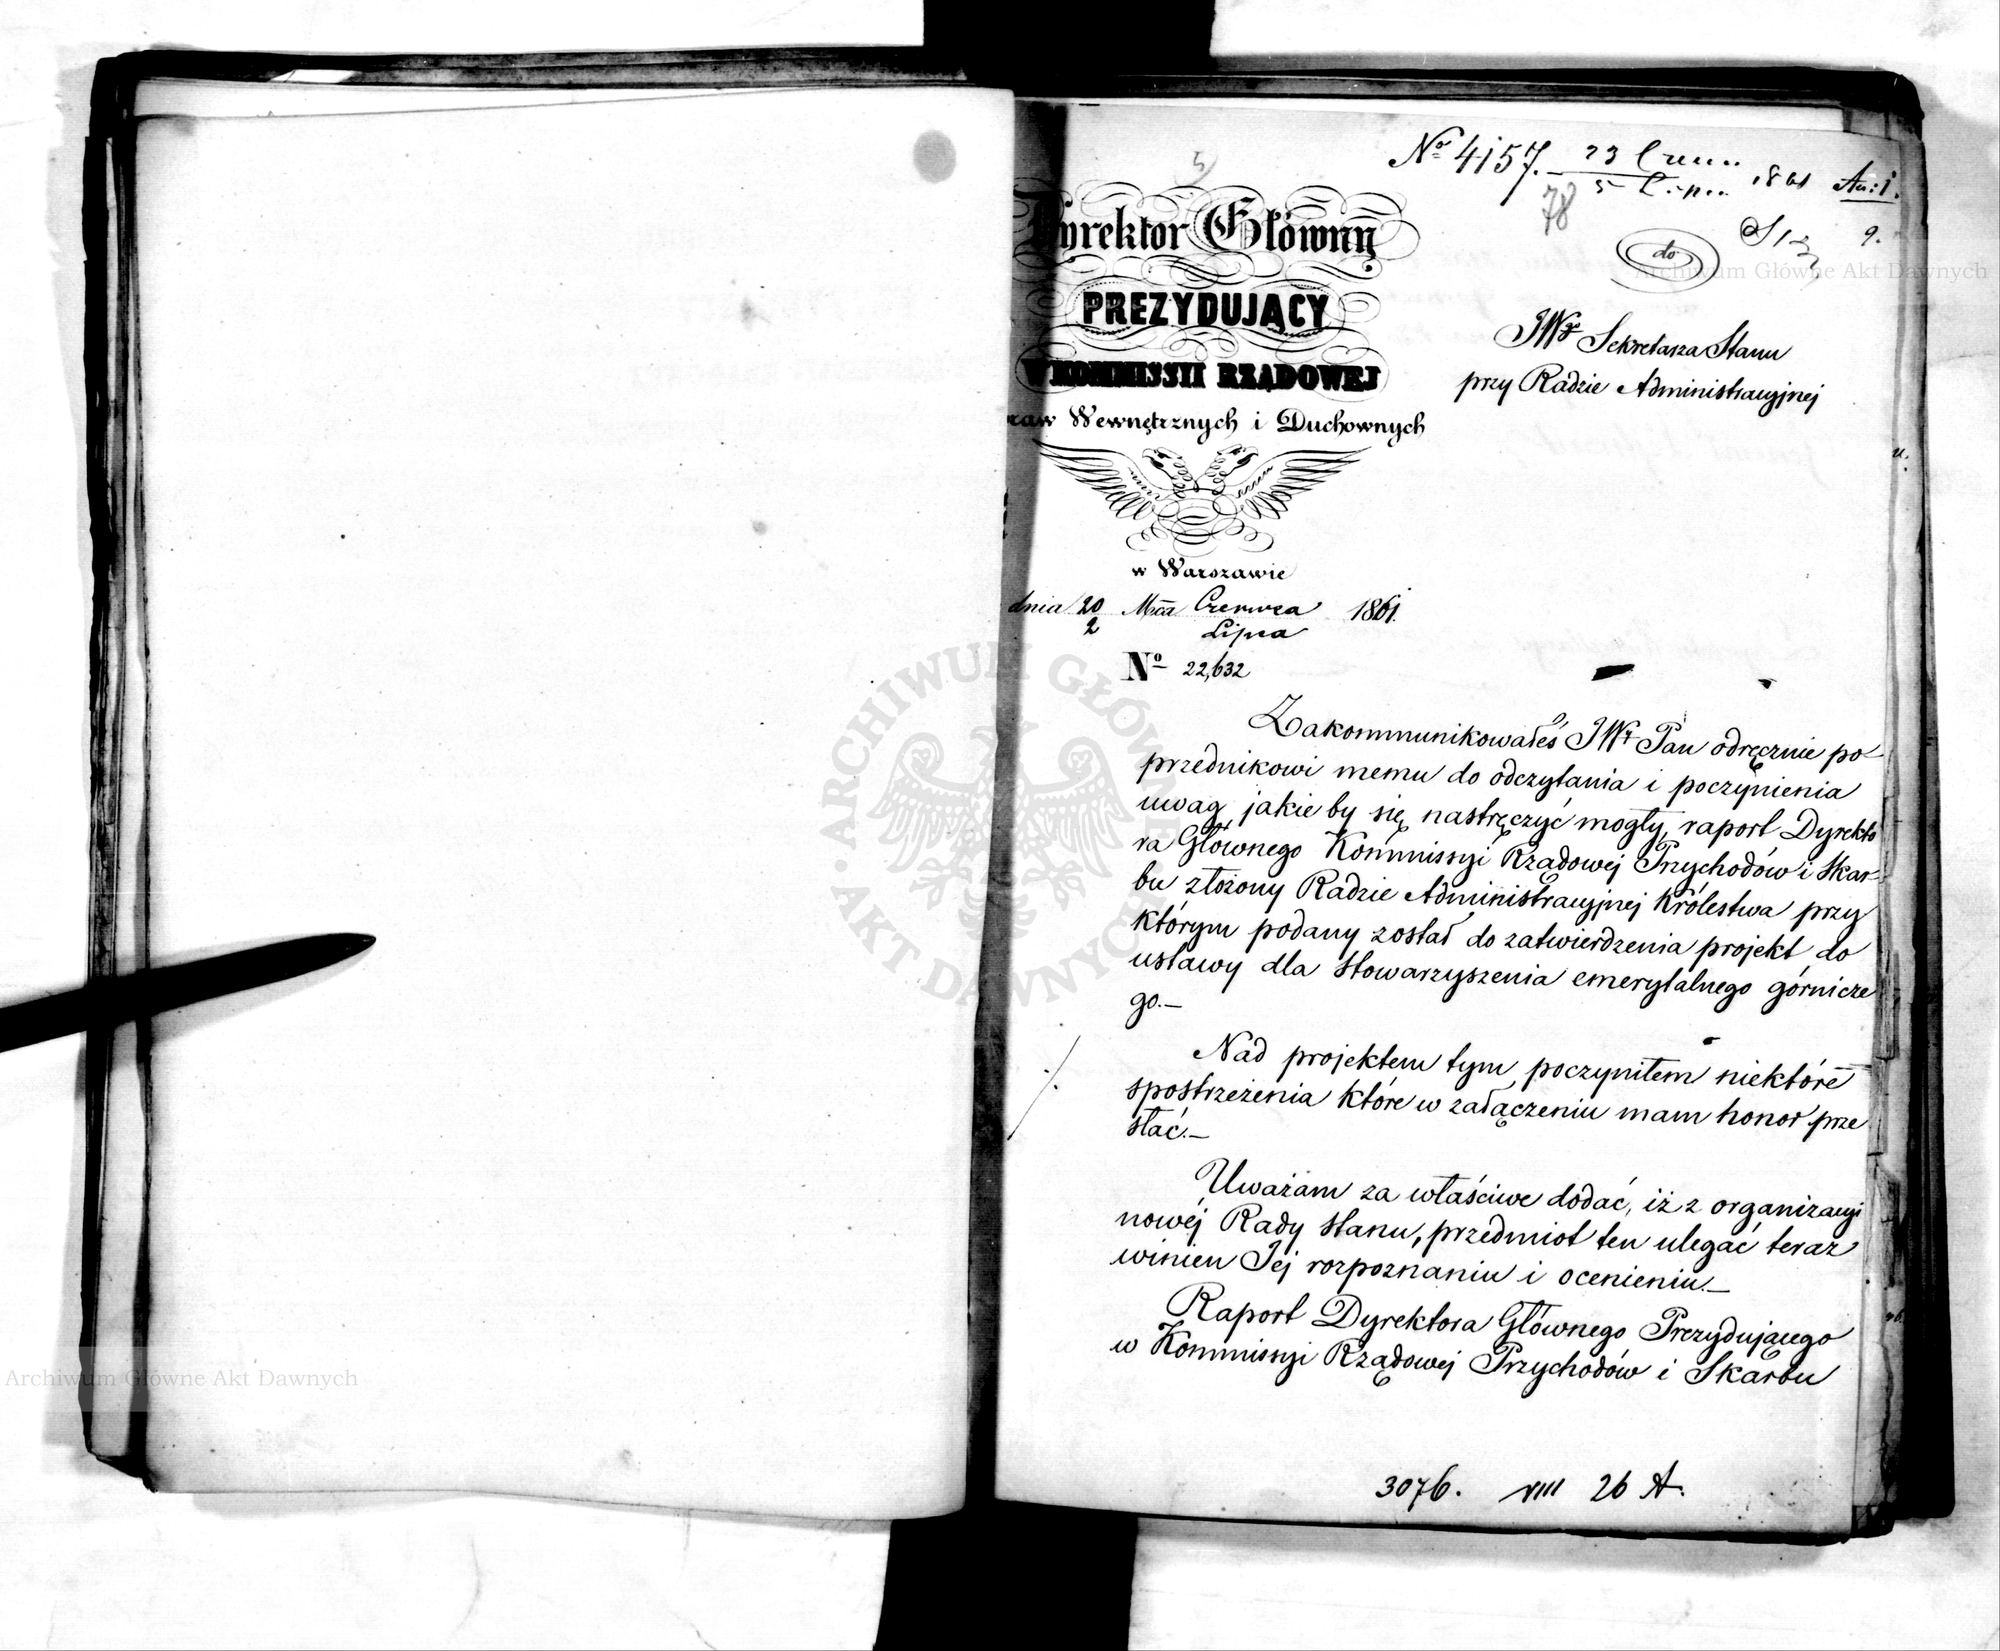 Nº 4157. 23 Czerw. 1861
5 Lip.
78
5
9.
Dyrektor Główny
PREZYDUJĄCY
W KOMMISSYI RZĄDOWEJ
Spraw Wewnętrznych i Duchownych
w Warszawie
dnia 20/2 Mca Czerwca/Lipca 1861.
Nº 22,632
do
JWo Sekretarza Stanu
przy Radzie Administracyjnej
Zakommunikowałeś JWy Pan odręcznie po-
przednikowi memu do odczytania i poczynienia
uwag, jakie by się nastręczyć mogły, raport Dyrekto
ra Głównego Kommissyi Rządowej Przychodów i Skar-
bu złożony Radzie Administracyjnej Królestwa przy
którym podany został do zatwierdzenia projekt do
ustawy dla stowarzyszenia emerytalnego górnicze
go.—
Nad projektem tym poczyniłem niektóre
spostrzeżenia które w załączeniu mam honor prze
słać.—
Uważam za właściwe dodać, iż z organizacyi
nowéj Rady stanu, przedmiot ten ulegać teraz
winien Jej rozpoznaniu i ocenieniu.—
Raport Dyrektora Głównego Prezydującego
w Kommissyi Rządowej Przychodów i Skarbu
3076. VIII 26 A.
Archiwum Główne Akt Dawnych
ARCHIWUM GŁÓWNE AKT DAWNYCH
Archiwum Główne Akt Dawnych